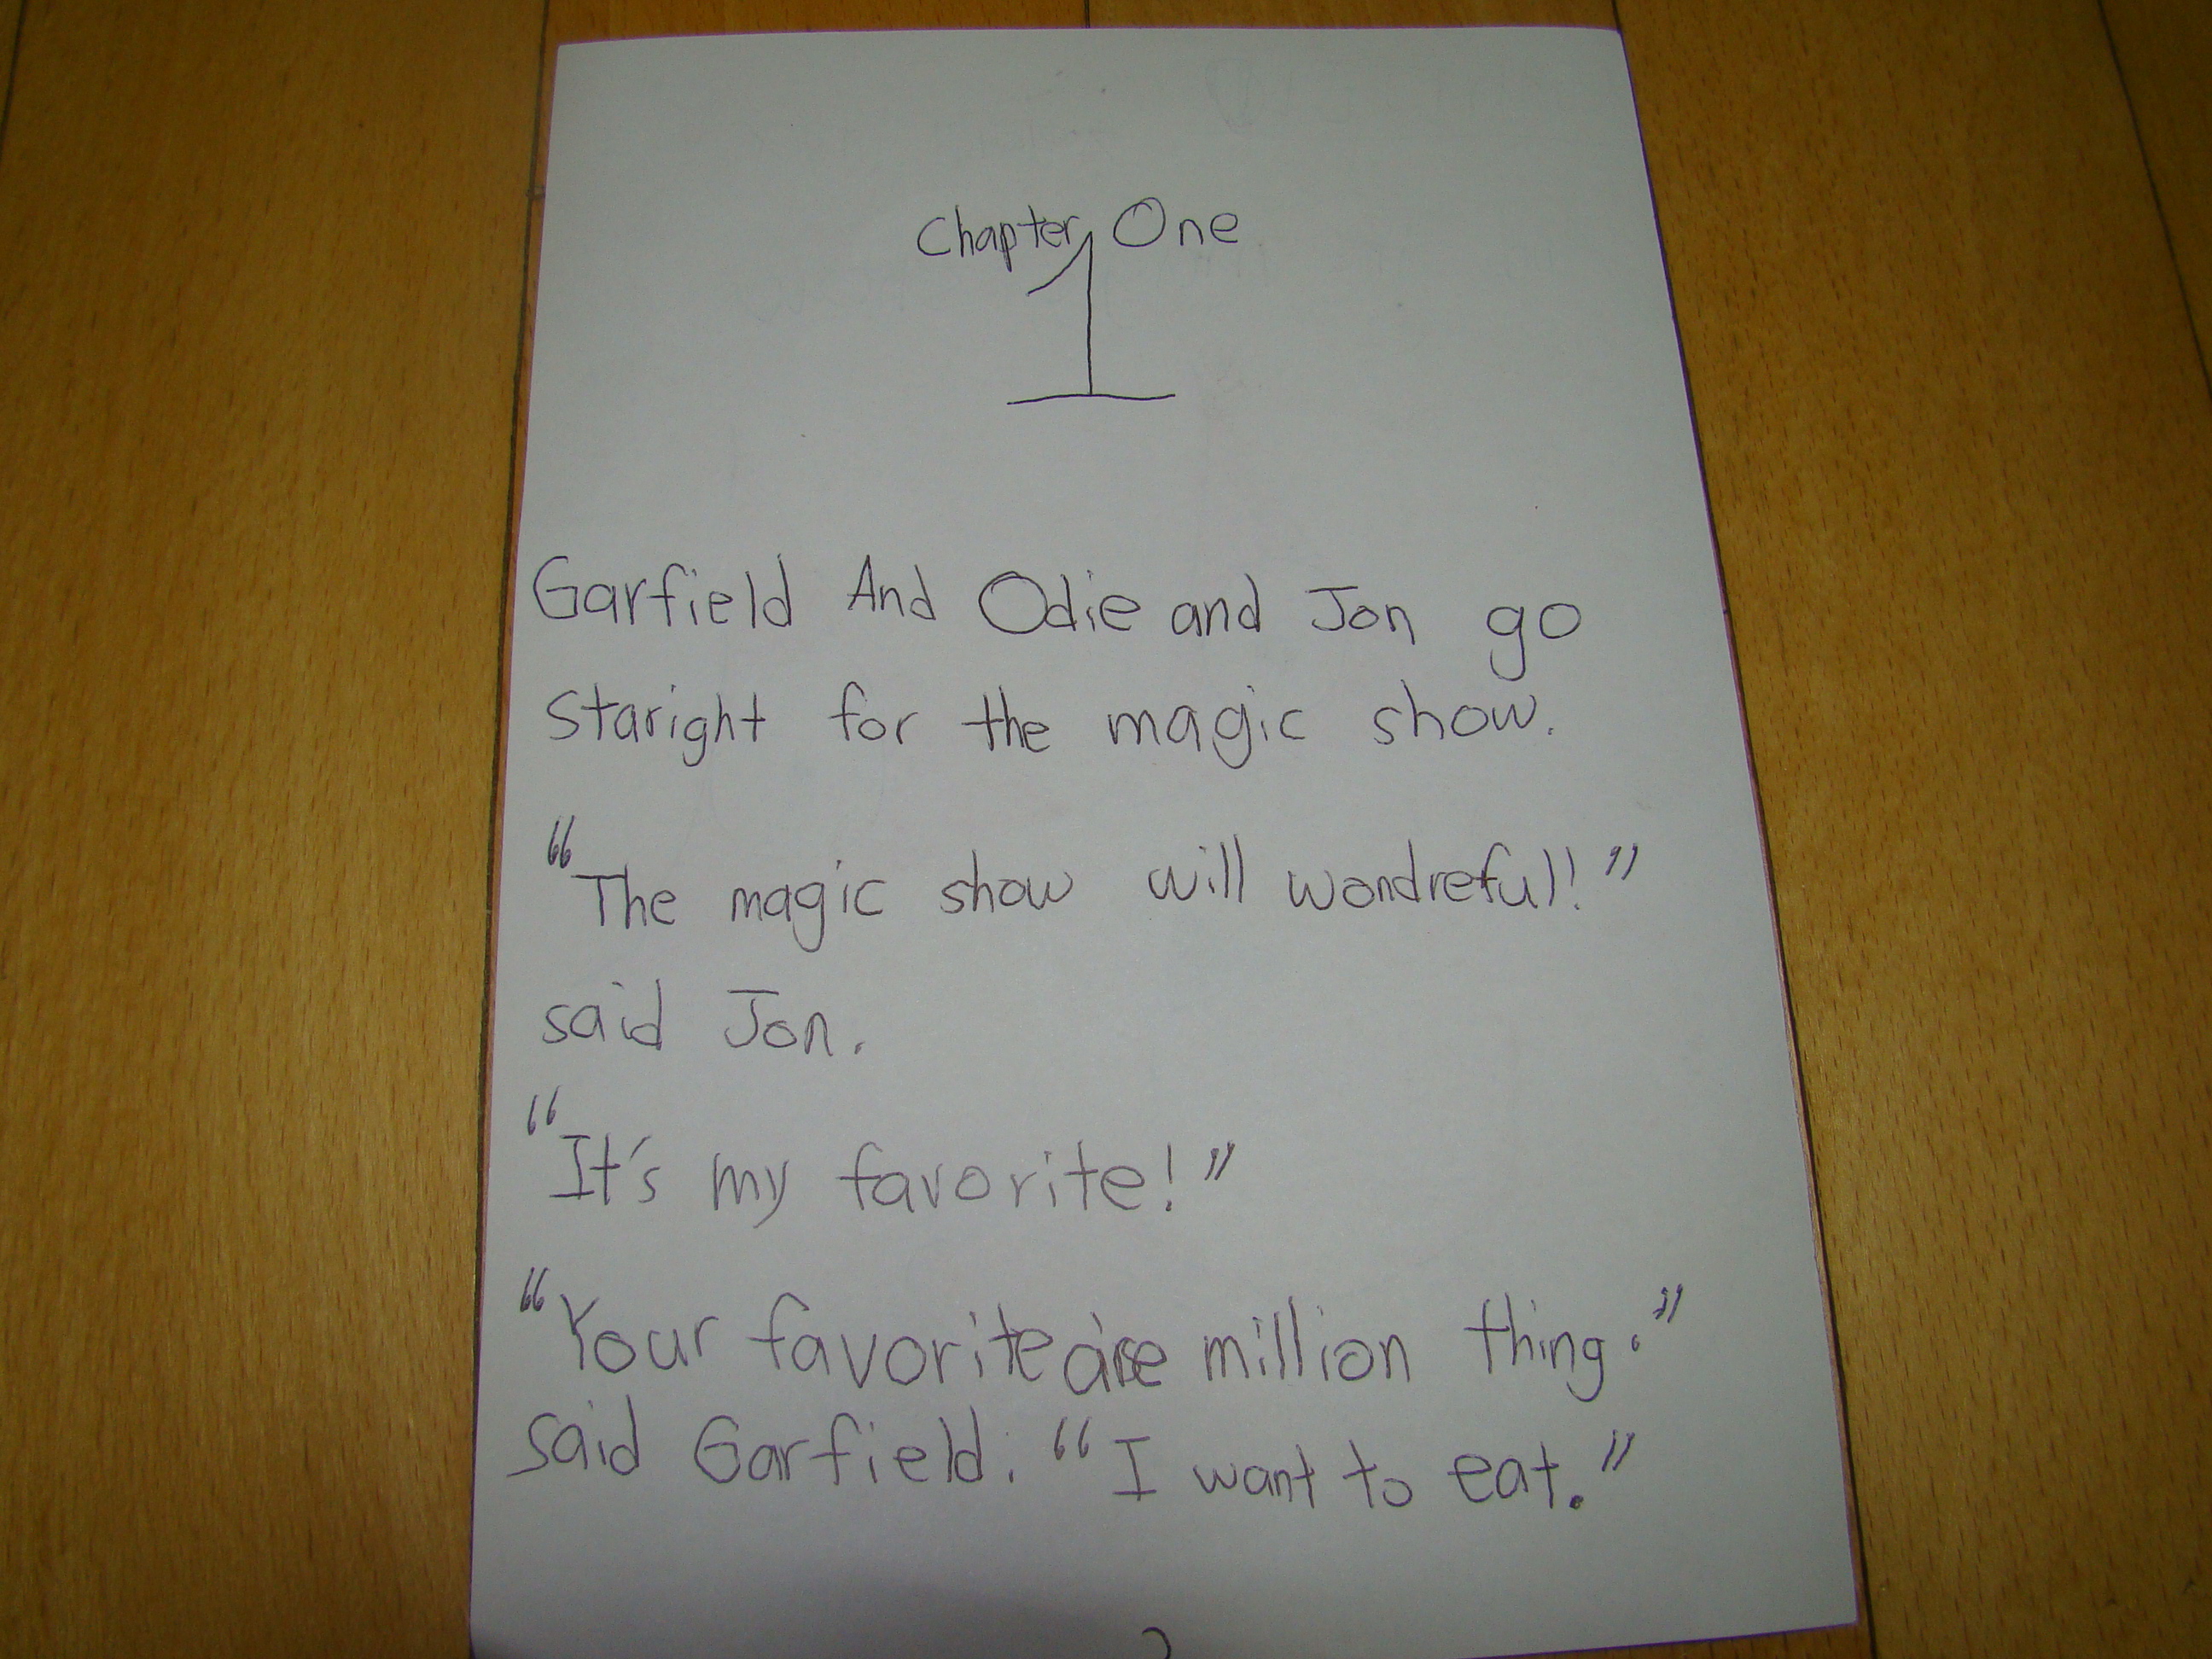 Chapter One
1
Garfield And Odie and Jon go
Staright for the magic show.
“The magic show will wondreful!”
said Jon.
“It's my favorite!”
“Your favorite are million thing.”
said Garfield. “I want to eat.”